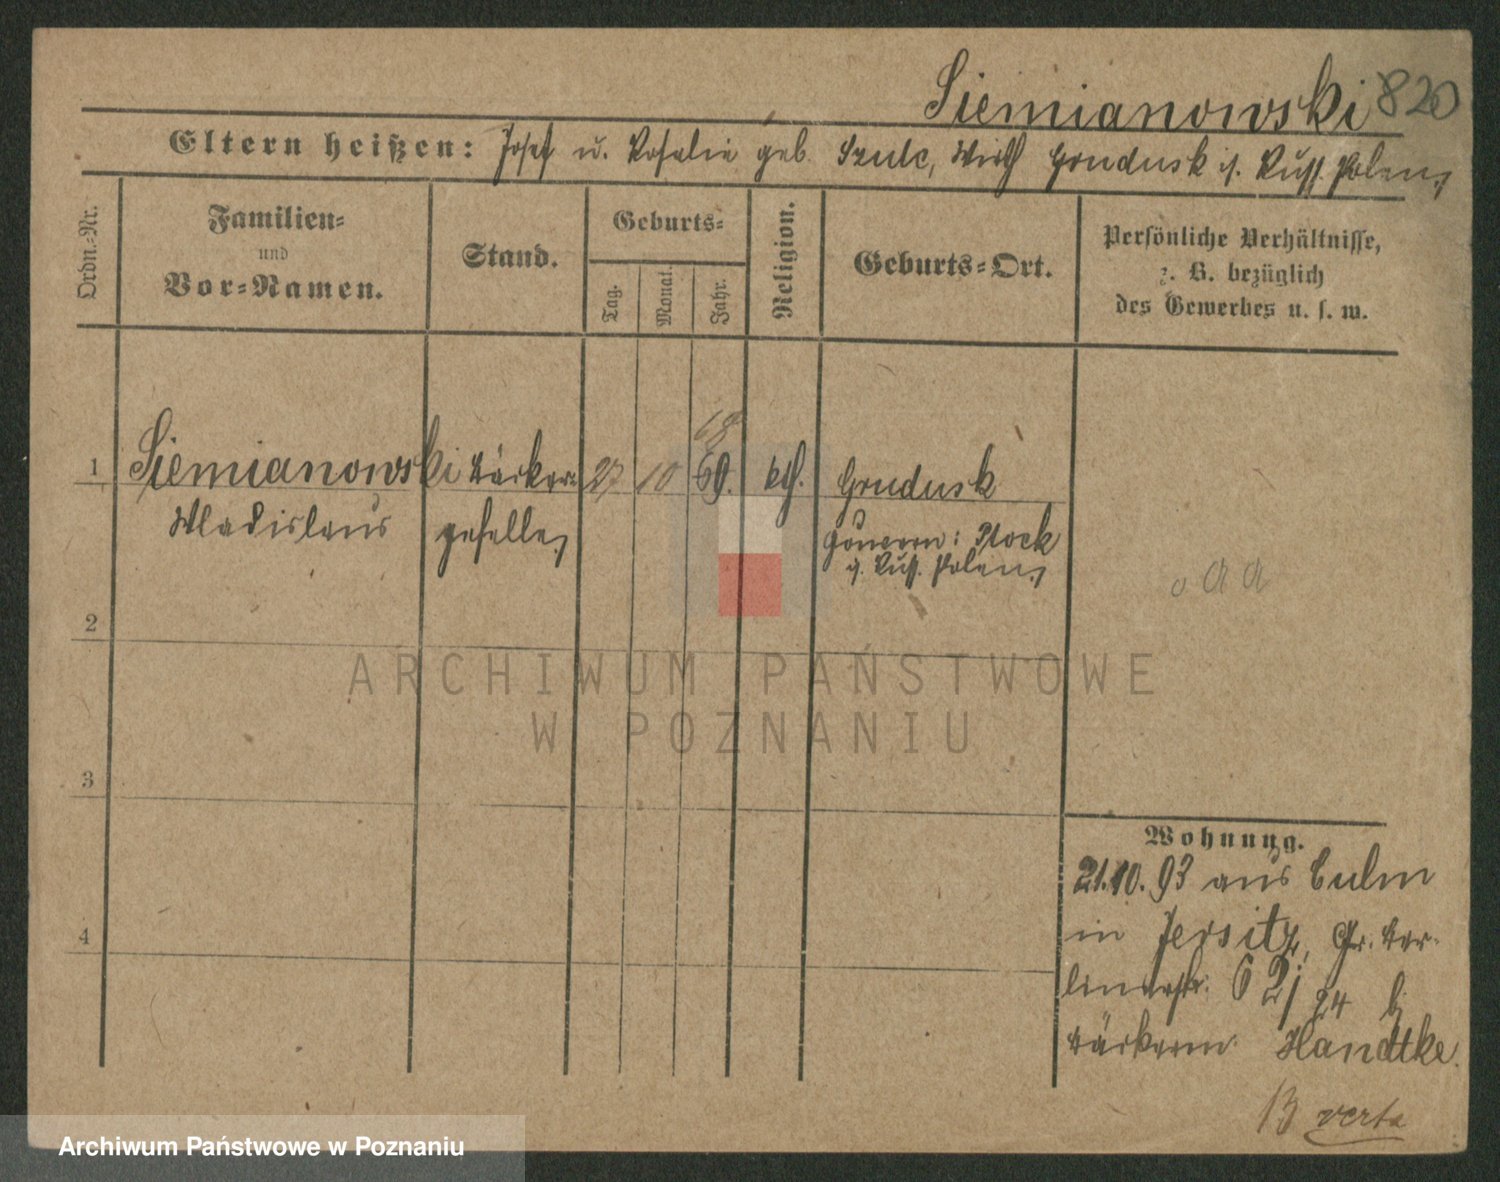 Siemianowski 820
Eltern heißen: Josef u. Rosalie geb. Szulc, Wirth Grudusk i. Russ. Polen,
Ordn.-Nr.
Familien-
und
Vor-Namen.
Stand.
Geburts-
Tag.
Monat.
Jahr.
Religion.
Geburts-Ort.
Persönliche Verhältnisse,
z. B. bezüglich
des Gewerbes u. s. w.
68
1 Siemianowski Bäcker- 27 10 69. kth. Grudusk
Wladislaus geselle, Gouvern: Plock
i. Russ. Polen,
2
ARCHIWUM PAŃSTWOWE
W POZNANIU
3
Wohnung.
21.10.93 aus Culm
in Jersitz, Gr. Ber-
4
linerstr. 62/24 b
Bäckerm. Handtke.
verte
Archiwum Państwowe w Poznaniu